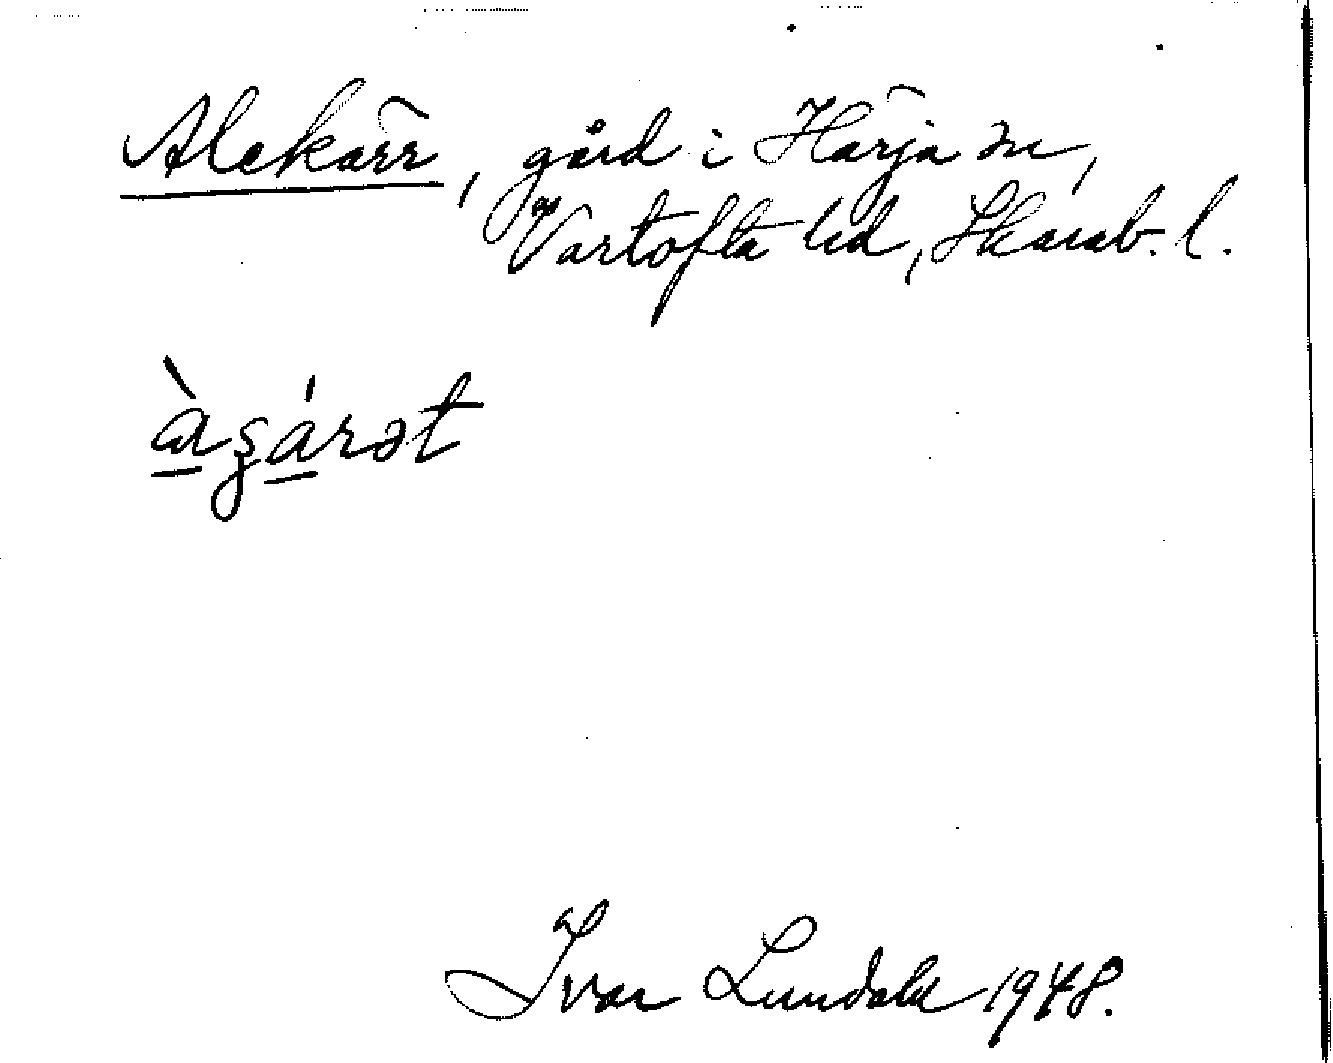 Alekärr, gård i Härja sn,
Vartofta hd, Skarab. l.
àʒárət
Ivar Lundahl 1948.